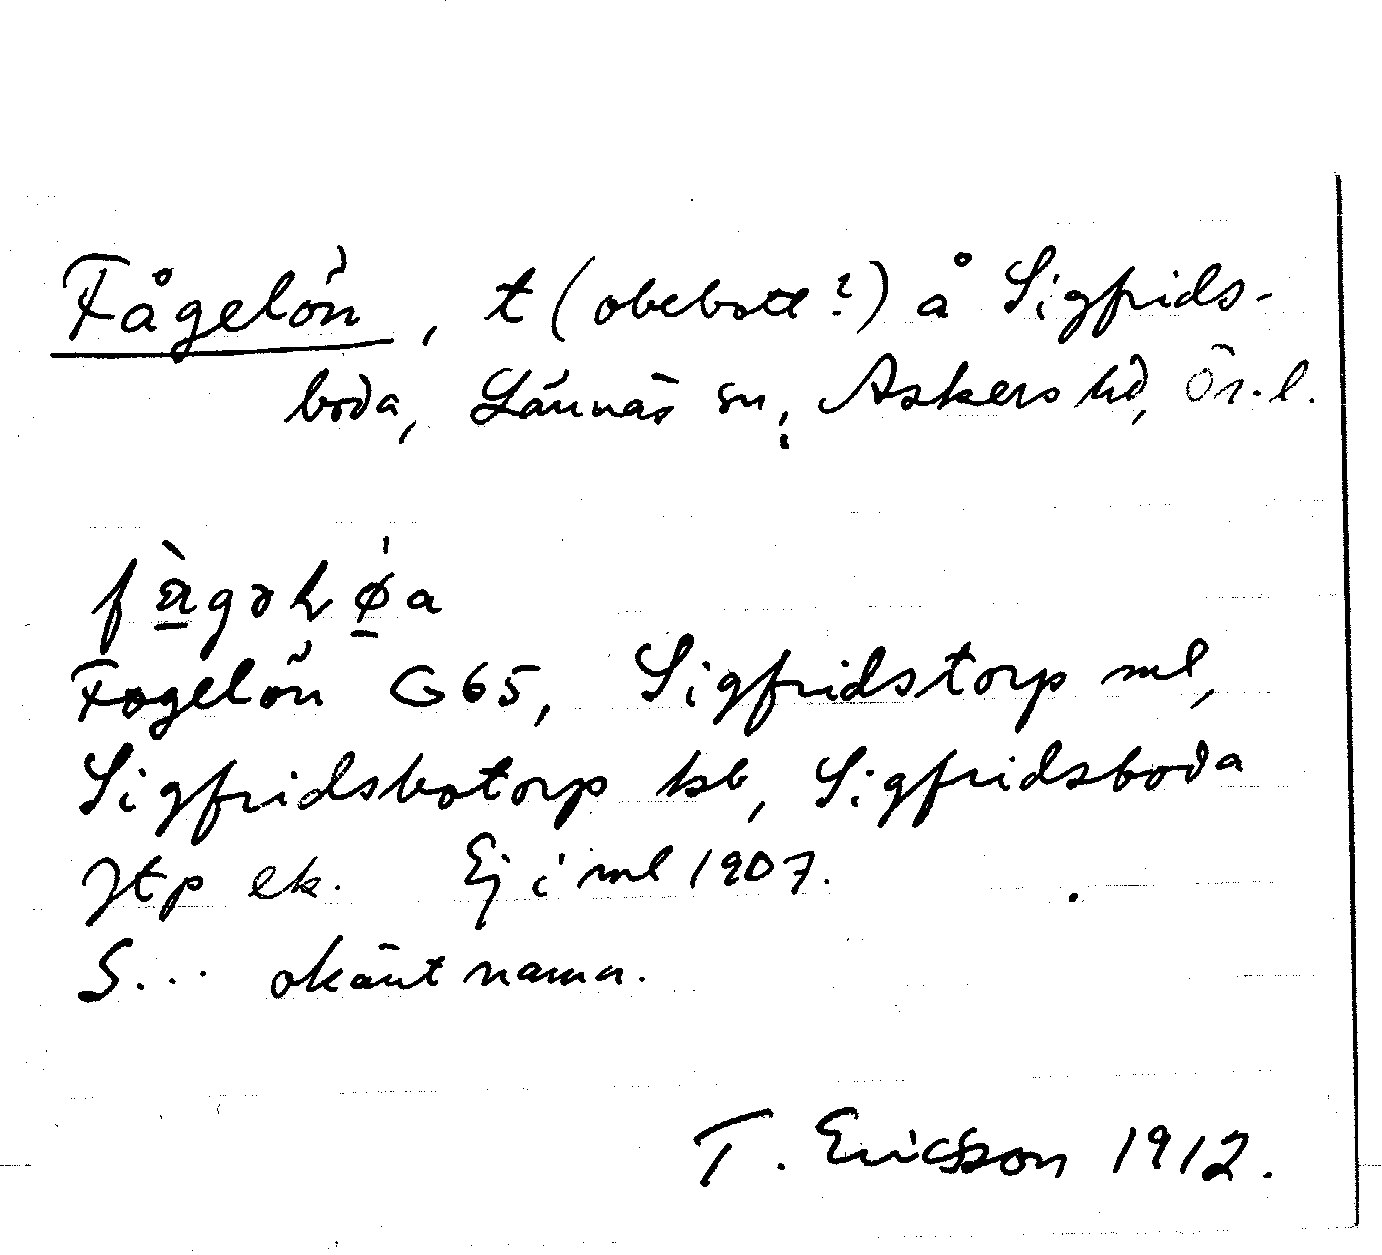 Fågelön, t (obebott?) å Sigfrids-
boda, Lännäs sn, Askers hd, Ör. l.
Fogelön G65, Sigfridstorp ml,
Sigfridsbotorp kb, Sigfridsboda
jtp ek. Ej i ml 1907.
S... okänt namn.
T. Ericsson 1912.